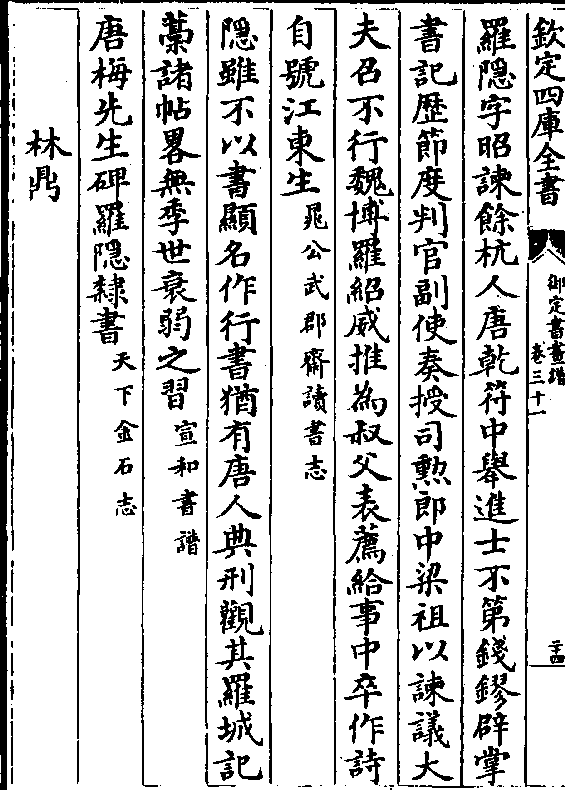 欽定四庫全書
御定書畫譜
卷三十一
二十四
羅隱字昭諫餘杭人唐乾符中舉進士不第錢鏐辟掌
書記歷節度判官副使奏授司勲郎中梁祖以諫議大
夫召不行魏博羅紹威推為叔父表薦給事中卒作詩
自號江東生晁公武郡齋讀書志
隱雖不以書顯名作行書猶有唐人典刑觀其羅城記
藁諸帖畧無季世衰弱之習宣和書譜
唐梅先生碑羅隱隸書天下金石志
林鼎